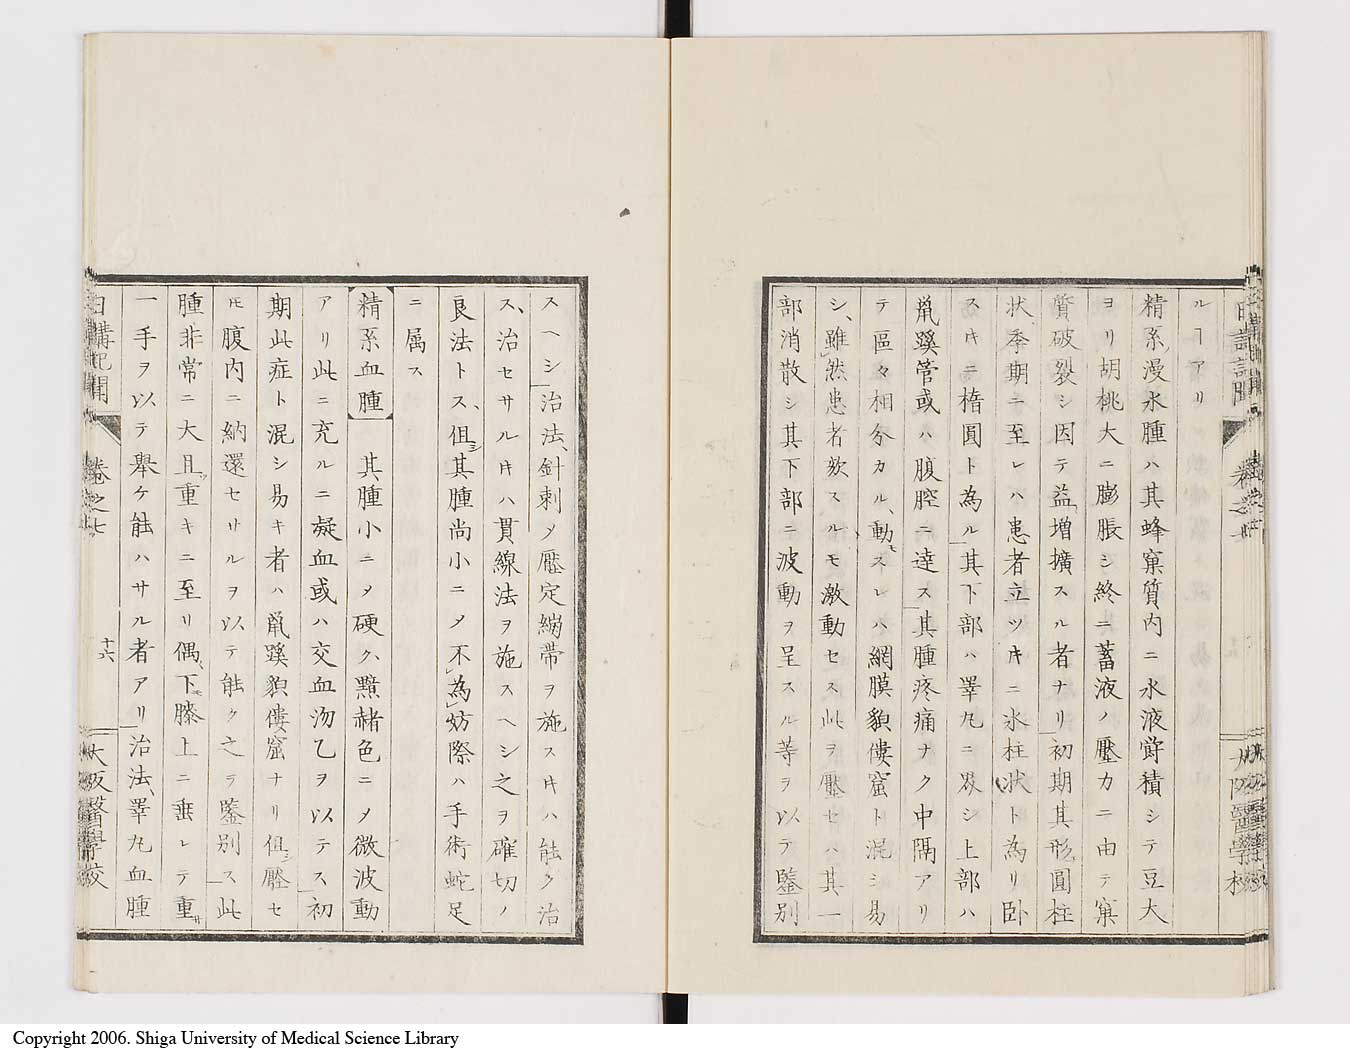 ルヿアリ
精系漫水腫ハ其蜂窠質内ニ水液瀦積シテ豆大
ヨリ胡桃大ニ膨脹シ終ニ蓄液ノ壓力ニ由テ窠
質破裂シ因テ益増擴スル者ナリ初期其形圓柱
状季期ニ至レハ患者立ツキニ氷柱状ト為リ卧
スキニ楕圓ト為ル其下部ハ睪丸ニ及シ上部ハ
鼠蹊管或ハ腹腔ニ達ス其腫疼痛ナク中隔アリ
テ區々相分カル動モスレハ網膜貌僂窟ト混シ易
シ雖然患者欬スルモ激動セス此ヲ壓セハ其一
部消散シ其下部ニ波動ヲ呈スル等ヲ以テ鑒別
スヘシ治法針刺メ壓定繃帯ヲ施スキハ能ク治
ス治セサルキハ貫線法ヲ施スヘシ之ヲ確切ノ
良法トス但シ其腫尚小ニメ不為妨際ハ手術蛇足
ニ属ス
精系血腫 其腫小ニメ硬ク黯赭色ニメ微波動
アリ此ニ充ルニ凝血或ハ交血沕乙ヲ以テス初
期此症ト混シ易キ者ハ鼠蹊貌僂窟ナリ但シ壓セ
ハ腹内ニ納還セリルヲ以テ能ク之ヲ鑒別ス此
腫非常ニ大且ツ重キニ至リ偶下膝上ニ垂レテ重サ
一手ヲ以テ擧ケ能ハサル者アリ治法睪丸血腫
日講記聞 卷之七 十六 大阪醫學校